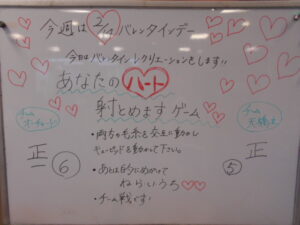 今週は 2/14 バレンタインデー
今日はバレンタインレクリエーションをします!!
あなたの ハート
射とめます ゲーム
チーム
チーム
・両方の毛糸を交互に動かし
キューピッドを動かして下さい。
・あとは的にめがけて
ねらいうち♡♡
・チーム戦です!
正一
⑥
⑤
正